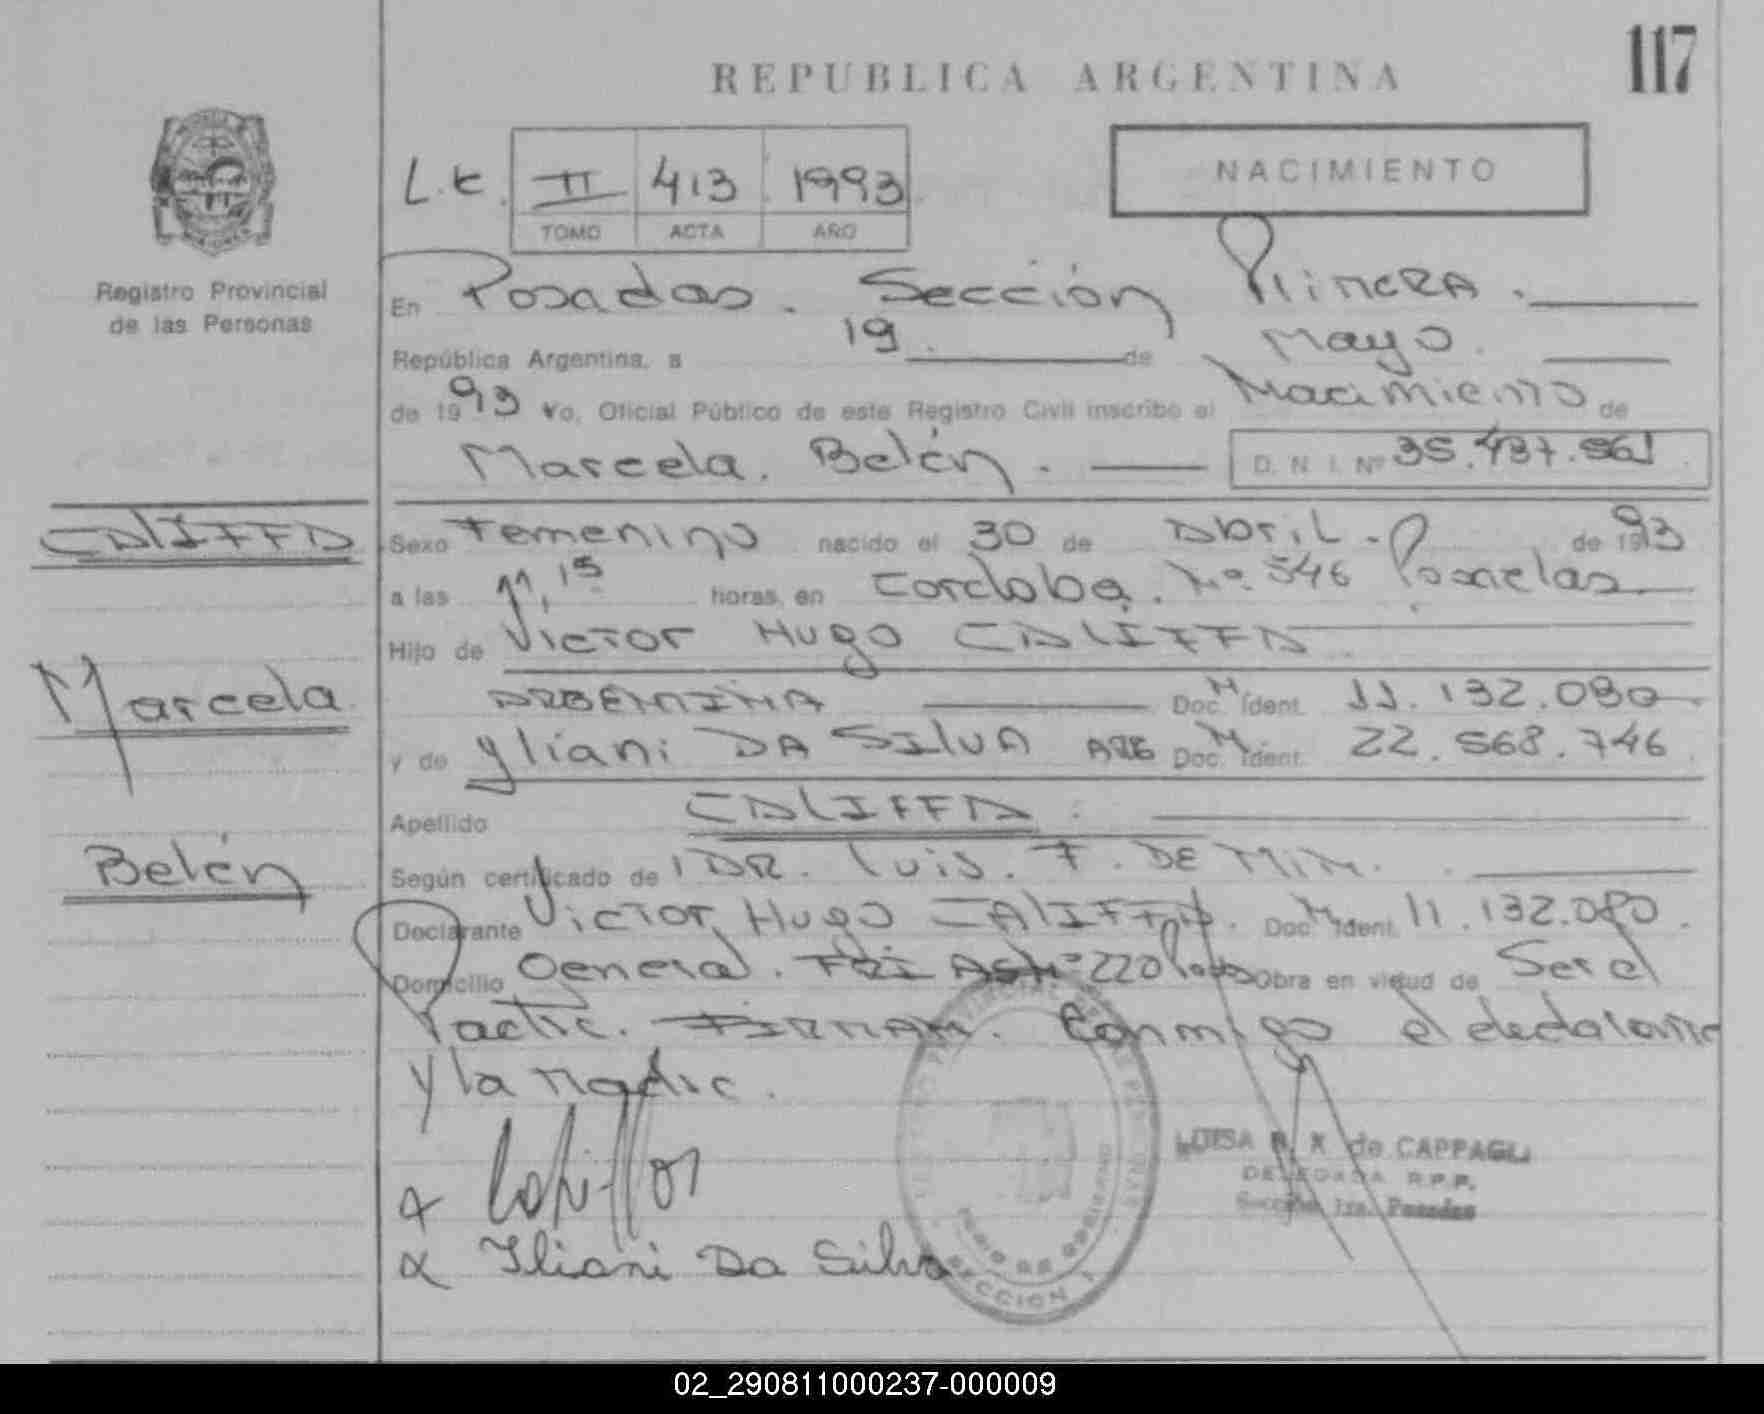 117
REPUBLICA ARGENTINA
NACIMIENTO
L. t. II 413 1993
TOMO ACTA AÑO
Registro Provincial
de las Personas
En Posadas. Sección Primera.
República Argentina, a 19 de Mayo
de 1993 Yo, Oficial Público de este Registro Civil inscribo el Nacimiento de
Marcela Belén. D. N. I. Nº 35.437.561
CALIFFA
Marcela
Belén
Sexo Femenino nacido el 30 de Abril de 1993
a las 11,15 horas, en Cordoba. Nº 546 Posadas
Hijo de Victor Hugo CALIFFA
ARGENTINA Doc. M. Ident. 11.132.080
y de Yliani DA SILVA ARG Doc. M. Ident. 22.568.746
Apellido CALIFFA
Según certificado de DR. Luis. F. DE MIM.
Declarante Victor Hugo CALIFFA. Doc. M. Ident. 11.132.080.
Domicilio General. Nº 220 Obra en virtud de Ser el
Padre. FIRMAN. Conmigo el declarante
y la madre.
Iliani Da Silva
LUISA de CAPPAGLI
DELEGADA R.P.P.
Sección 1ra. Posadas
SECCION 1
02_290811000237-000009